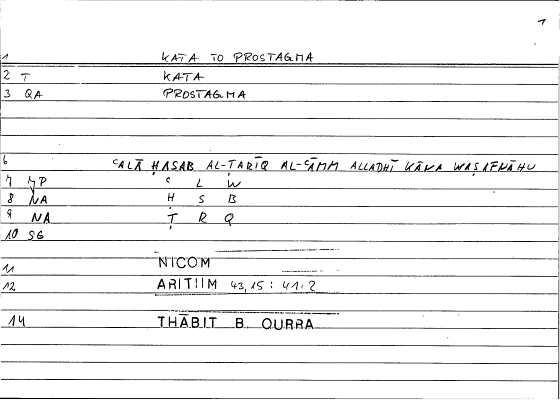 1
1 KATA TO PROSTAGMA
2 T KATA
3 QA PROSTAGMA
6 ʿALĀ ḤASAB AL-ṬARĪQ AL-ʿĀMM ALLADHĪ KĀNA WAṢAFNĀHU
7 ʿ L W
8 NA Ḥ S B
9 NA Ṭ R Q
10 SG
11 NICOM
12 ARITHM 43,15 : 41.2
14 THĀBIT B. QURRA